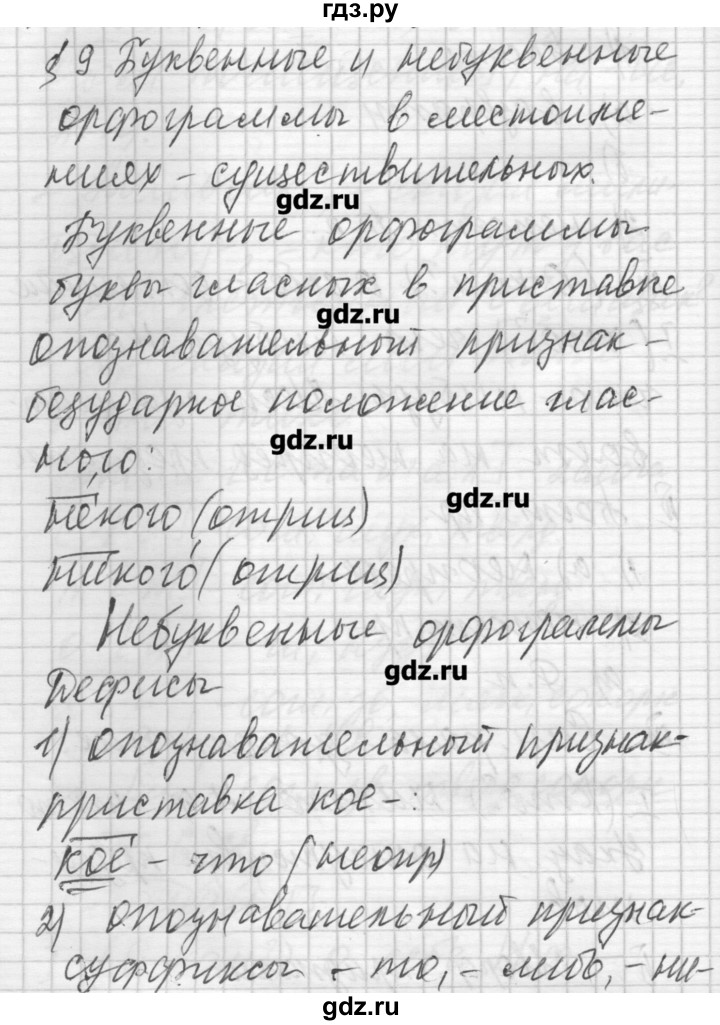 гдз.ру
§ 9 Буквенные и небуквенные
орфограммы в местоиме-
ниях - существительных.
gdz.ru
Буквенные орфограммы
буквы гласных в приставке
gdz.ru
опознавательный признак -
безударное положение глас-
gdz.ru
ного:
gdz.ru
не́кого (отриц)
никого́ (отриц)
Небуквенные орфограммы
gdz.ru
Дефисы
1) опознавательный признак-
приставка кое-:
кое - что (неопр)
2) опознавательный признак-
суффиксы - то, - либо, - ни-
gdz.ru